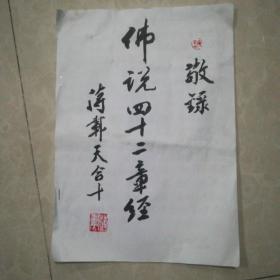 敬录
佛说四十二章经
蒋载天合十